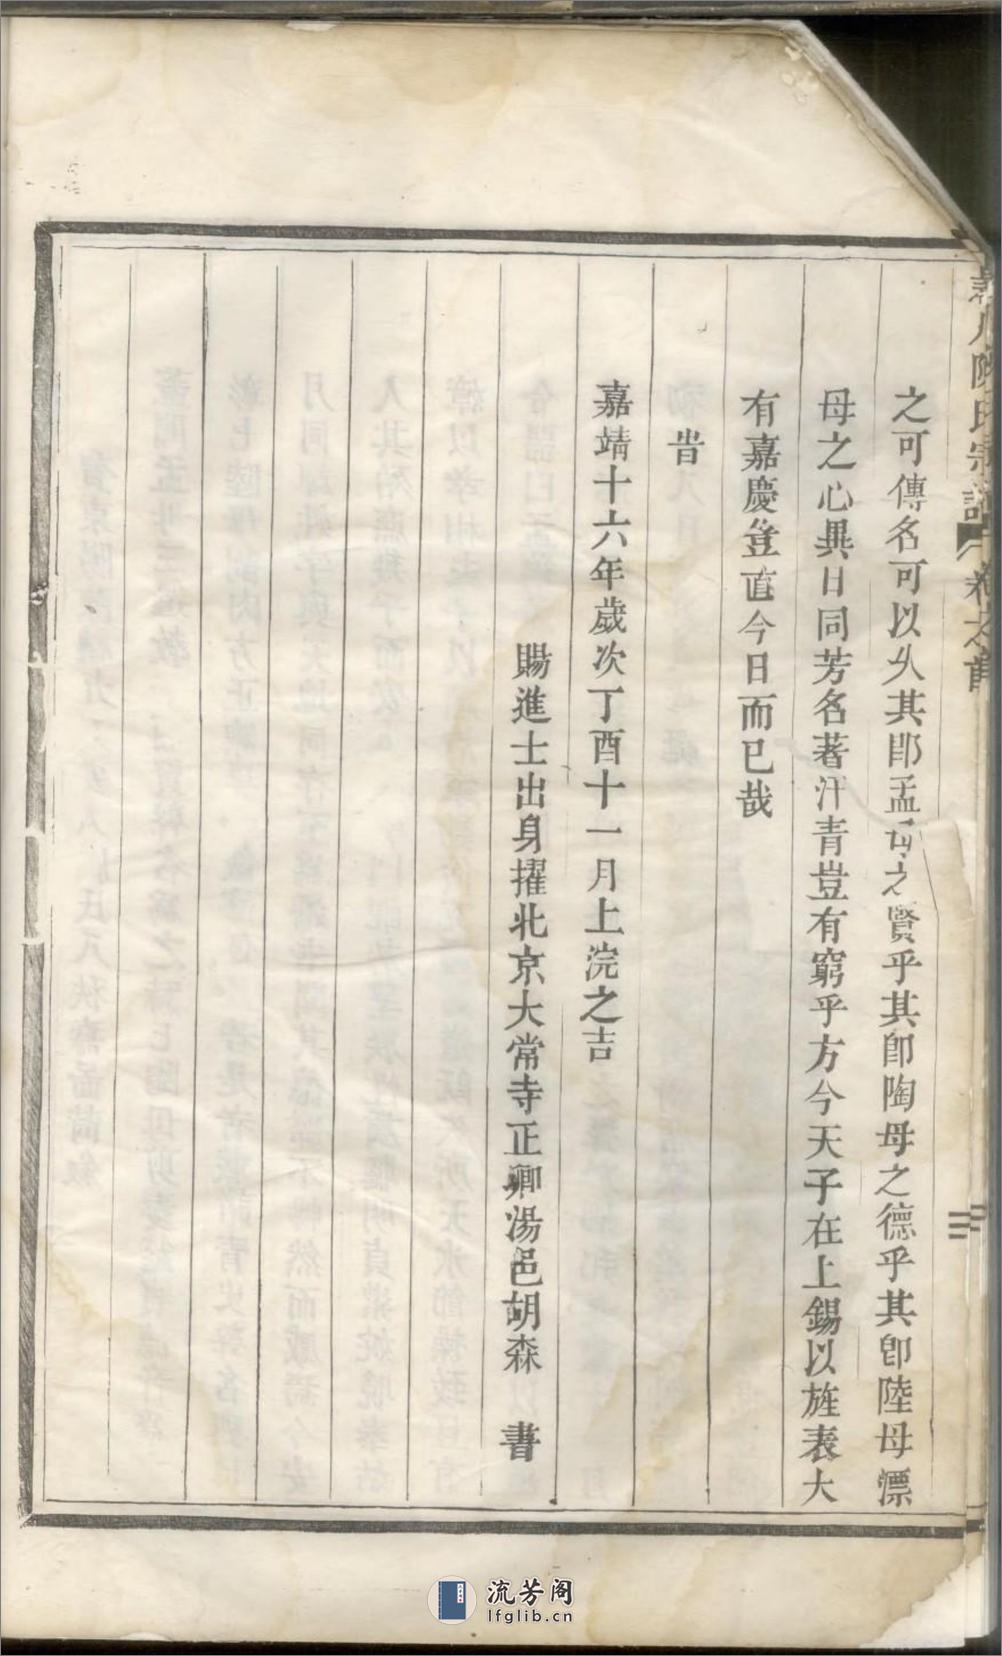 陳氏宗譜 卷之首
之可傳名可以久其卽孟母之賢乎其卽陶母之德乎其卽陸母漂
母之心異日同芳名著汗青豈有窮乎方今天子在上錫以旌表大
有嘉慶豈直今日而已哉
旹
嘉靖十六年歲次丁酉十一月上浣之吉
賜進士出身擢北京大常寺正卿湯邑胡森 書
三
流芳阁
lfglib.cn